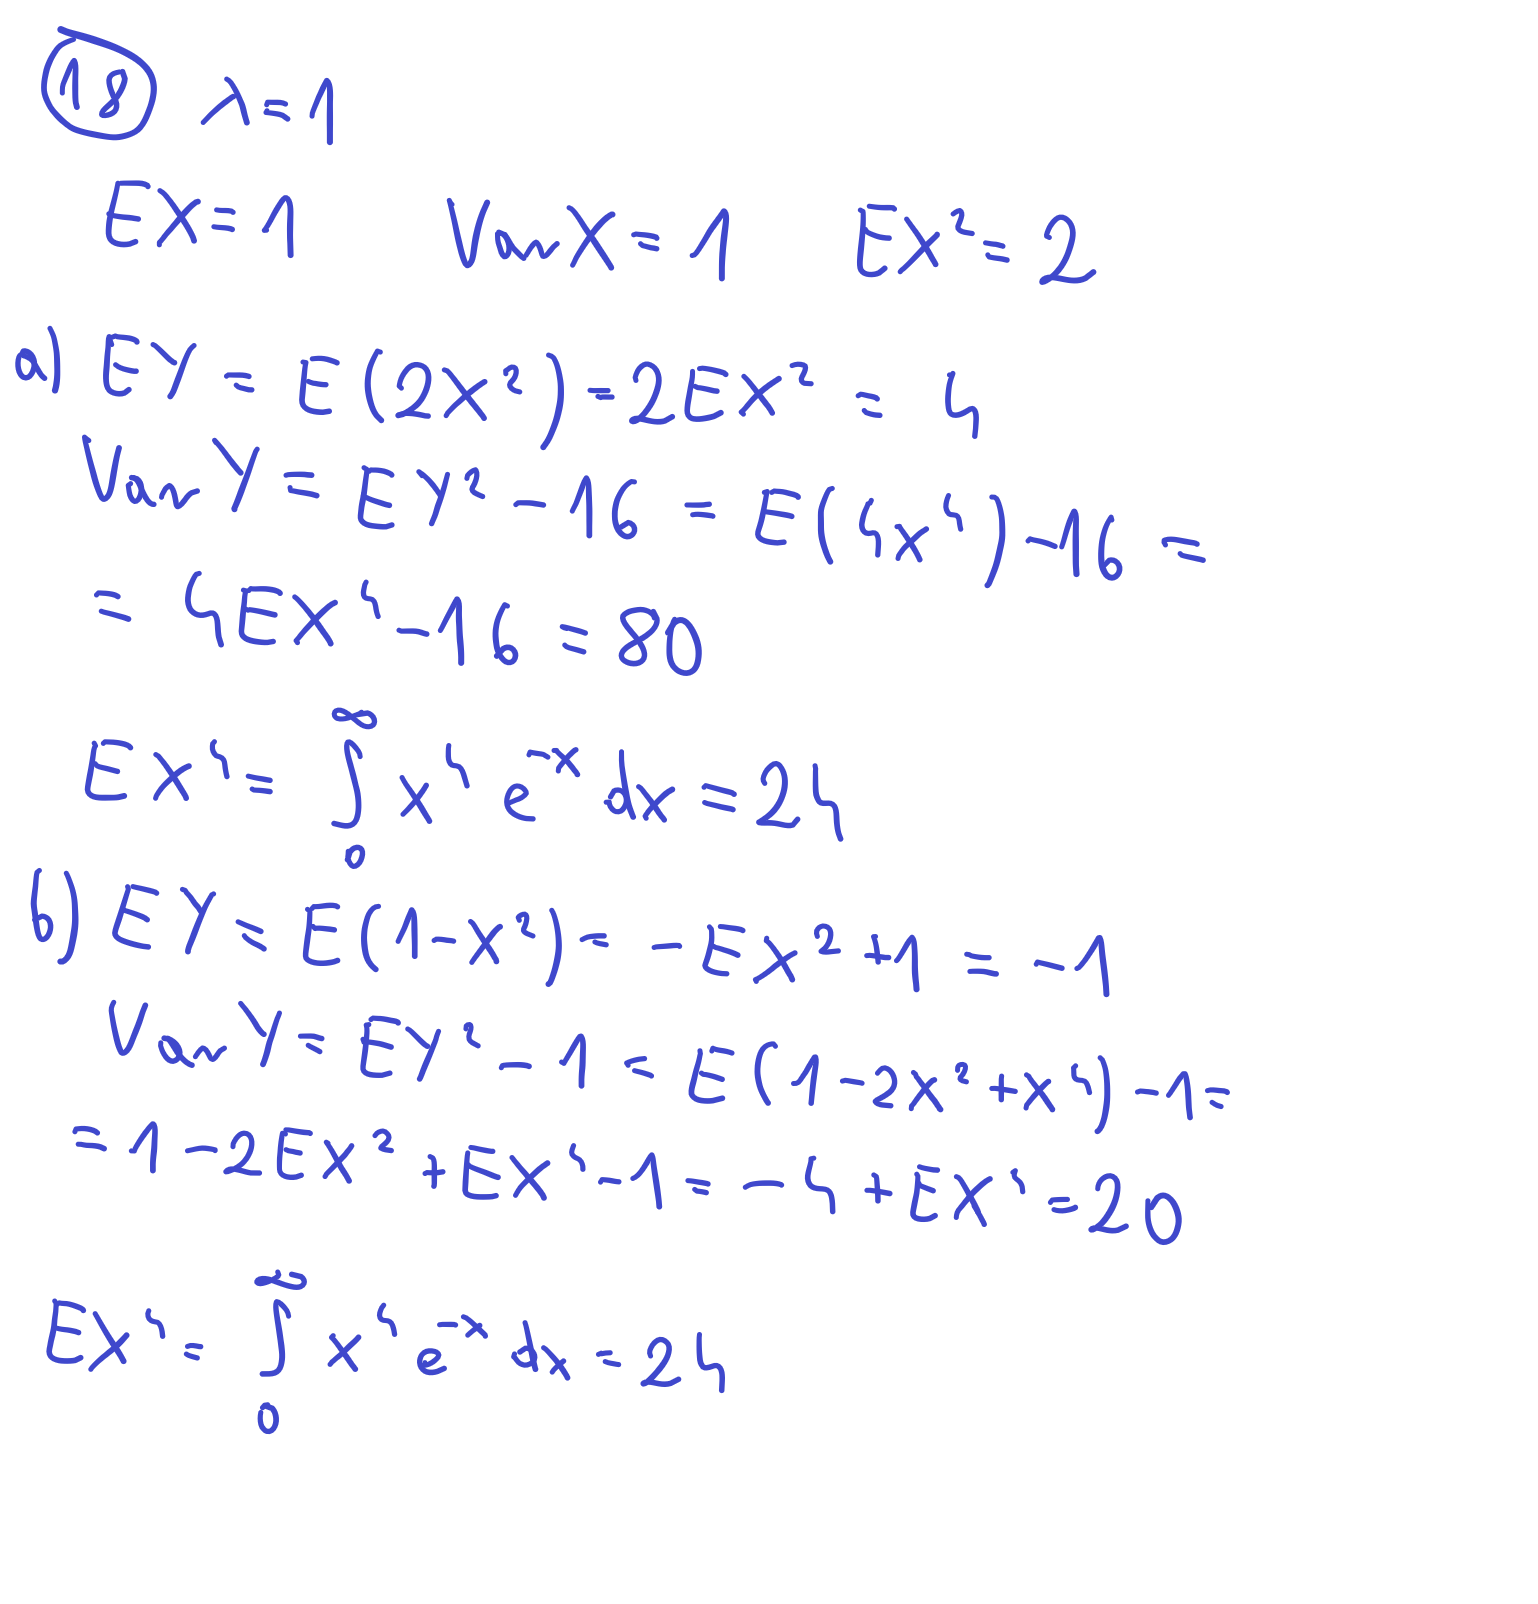 18 λ = 1
EX = 1 Var X = 1 EX² = 2
a) EY = E(2X²) = 2EX² = 4
Var Y = EY² - 16 = E(4x⁴) - 16 =
= 4EX⁴ - 16 = 80
EX⁴ = ∫₀^∞ x⁴ e^{-x} dx = 24
b) EY = E(1 - X²) = - EX² + 1 = -1
Var Y = EY² - 1 = E(1 - 2X² + X⁴) - 1 =
= 1 - 2EX² + EX⁴ - 1 = - 4 + EX⁴ = 20
EX⁴ = ∫₀^∞ x⁴ e^{-x} dx = 24